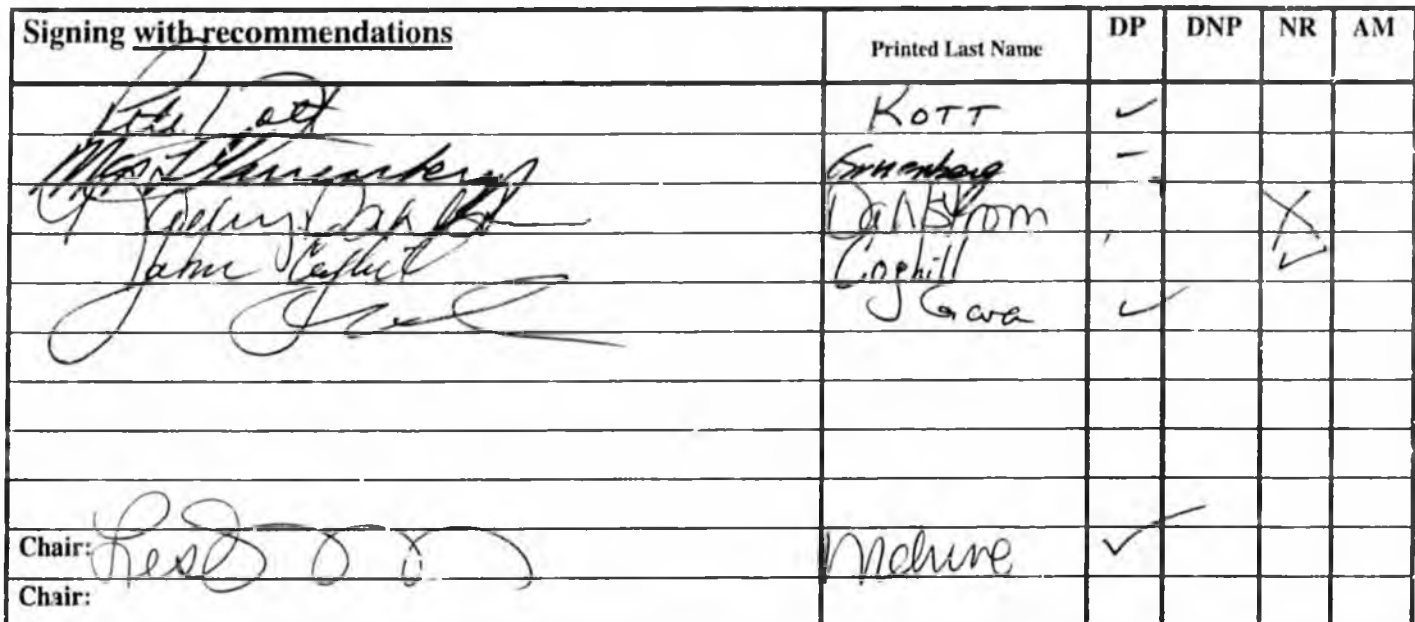 Signing with recommendations Printed Last Name DP DNP NR AM
Pete Kott KOTT ✓
Gruenberg –
Dahlstrom X
John Coghill Coghill ✓
Gara ✓
Chair: McGuire ✓
Chair: